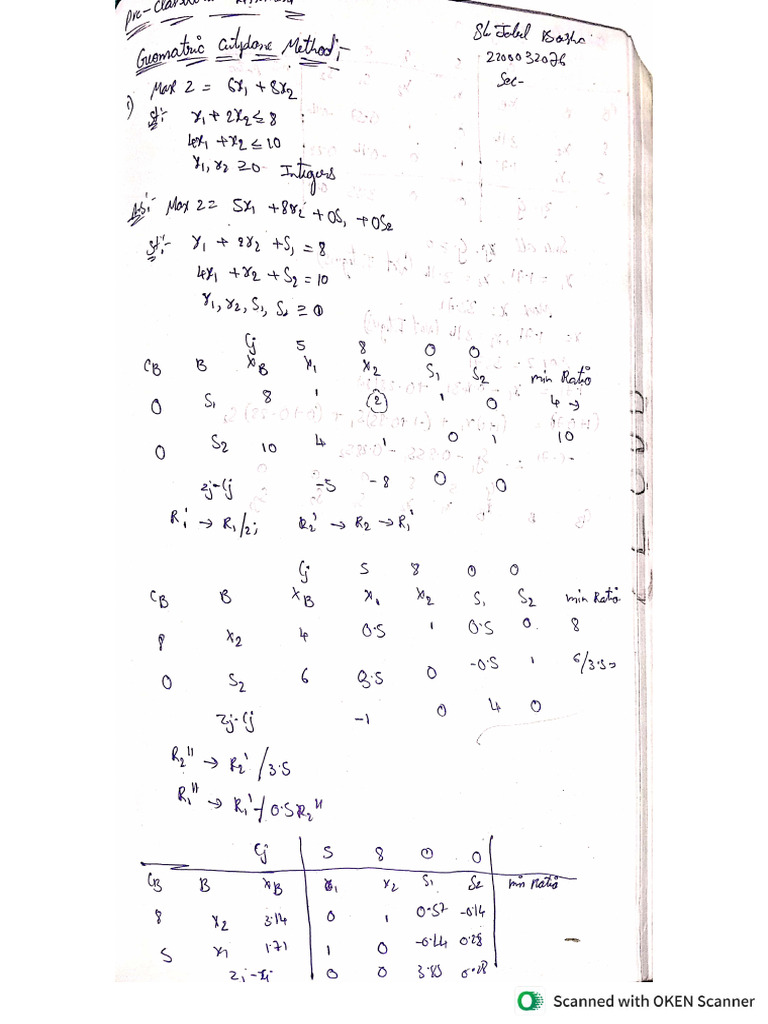 Pre-Class
Sk Jalel Basha
Geomatric Cutplane Method:-
2200032076
Sec-
1) Max Z = 6x₁ + 8x₂
St:- x₁ + 2x₂ ≤ 8
4x₁ + x₂ ≤ 10
x₁, x₂ ≥ 0 Intigers
Ans:- Max Z = 5x₁ + 8x₂ + 0S₁ + 0S₂
St:- x₁ + 2x₂ + S₁ = 8
4x₁ + x₂ + S₂ = 10
x₁, x₂, S₁, S₂ ≥ 0
Cj 5 8 0 0
CB B XB x₁ x₂ S₁ S₂ min Ratio
0 S₁ 8 1 2 1 0 4 →
0 S₂ 10 4 1 0 1 10
Zj-Cj -5 -8 0 0
R₁' → R₁/2; R₂' → R₂ → R₁'
Cj 5 8 0 0
CB B XB x₁ x₂ S₁ S₂ min Ratio
8 x₂ 4 0.5 1 0.5 0 8
0 S₂ 6 3.5 0 -0.5 1 6/3.5=
Zj-Cj -1 0 4 0
R₂" → R₂'/3.5
R₁" → R₁'-0.5R₂"
Cj 5 8 0 0
CB B XB x₁ x₂ S₁ S₂ min Ratio
8 x₂ 3.14 0 1 0.57 -0.14
5 x₁ 1.71 1 0 -0.14 0.28
0 0 3.85 0.28
Scanned with OKEN Scanner